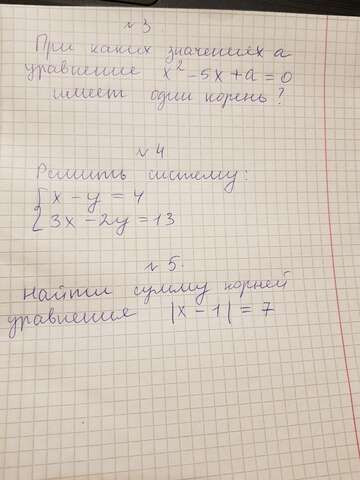 № 3
При каких значениях а
уравнение x² - 5x + a = 0
имеет один корень?
№ 4
Решить систему:
{ x - y = 4
{ 3x - 2y = 13
№ 5.
Найти сумму корней
уравнения |x - 1| = 7